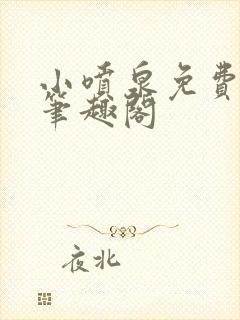 小喷泉免费
筆趣阁
夜北